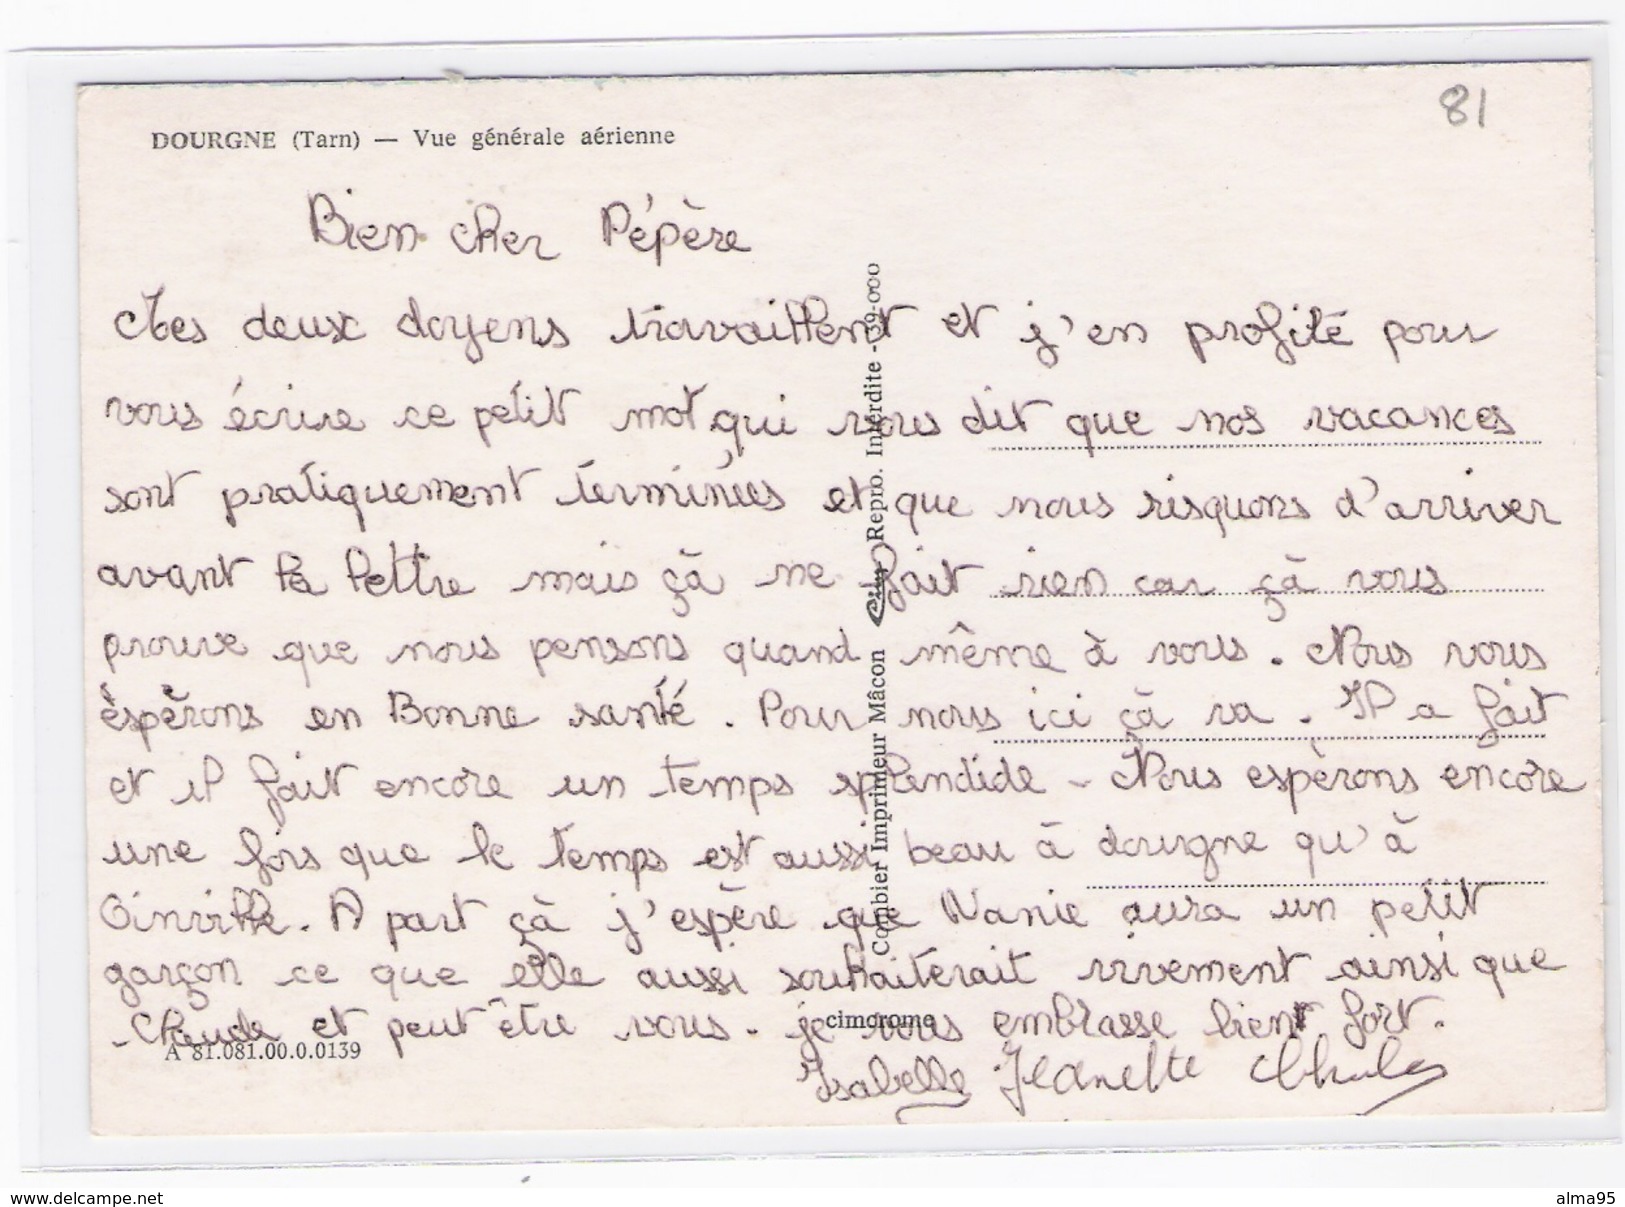 81
DOURGNE (Tarn) — Vue générale aérienne
Bien cher Pépère
Les deux doyens travaillent et j'en profité pour
vous écrire ce petit mot qui vous dit que nos vacances
sont pratiquement terminées et que nous risquons d'arriver
avant la lettre mais çà ne fait rien car çà vous
prouve que nous pensons quand même à vous. Nous vous
èspèrons en Bonne santé. Pour nous ici çà va. Il a fait
et il fait encore un temps splendide - Nous espèrons encore
une fois que le temps est aussi beau à dourgne qu'à
Oinville. A part çà j'espère que Nanie aura un petit
garçon ce que elle aussi souhaiterait vivement ainsi que
Claude et peut être vous. je vous emblasse bien fort.
Isabelle Jeanette Charles
A 81.081.00.0.0139
cimcrome
Combier Imprimeur Mâcon Cim Repro. Interdite - 39-000
www.delcampe.net
alma95